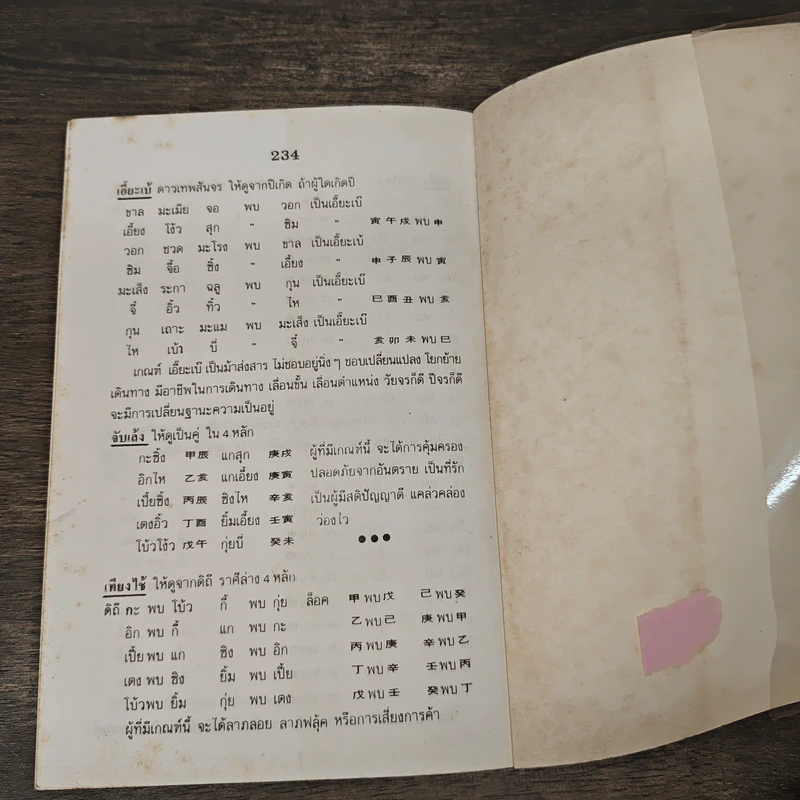 234
เอี๊ยะเบ้ ดาวเทพสันจร ให้ดูจากปีเกิด ถ้าผู้ใดเกิดปี
ขาล มะเมีย จอ พบ วอก เป็นเอี๊ยะเบ้
เอี้ยง โง้ว สุก " ซิม " 寅午戌 พบ 申
วอก ชวด มะโรง พบ ขาล เป็นเอี๊ยะเบ้
ซิม จื้อ ซิ้ง " เอี้ยง " 申子辰 พบ 寅
มะเส็ง ระกา ฉลู พบ กุน เป็นเอี๊ยะเบ้
จี๋ อิ้ว ทิ้ว " ไห " 巳酉丑 พบ 亥
กุน เถาะ มะแม พบ มะเส็ง เป็นเอี๊ยะเบ้
ไห เบ้า บี่ " จี๋ " 亥卯未 พบ 巳
เกณฑ์ เอี๊ยะเบ้ เป็นม้าส่งสาร ไม่ชอบอยู่นิ่งๆ ชอบเปลี่ยนแปลง โยกย้าย
เดินทาง มีอาชีพในการเดินทาง เลื่อนขั้น เลื่อนตำแหน่ง วัยจรก็ดี ปีจรก็ดี
จะมีการเปลี่ยนฐานะความเป็นอยู่
จับเล้ง ให้ดูเป็นคู่ ใน 4 หลัก
กะซิ้ง 甲辰 แกสุก 庚戌 ผู้ที่มีเกณฑ์นี้ จะได้การคุ้มครอง
อิกไห 乙亥 แกเอี้ยง 庚寅 ปลอดภัยจากอันตราย เป็นที่รัก
เปี้ยซิ้ง 丙辰 ซิงไห 辛亥 เป็นผู้มีสติปัญญาดี แคล่วคล่อง
เตงอิ้ว 丁酉 ยิ้มเอี้ยง 壬寅 ว่องไว
โบ้วโง้ว 戊午 กุ่ยบี่ 癸未 ●●●
เทียงไช้ ให้ดูจากดิถี ราศีล่าง 4 หลัก
ดิถี กะ พบ โบ้ว กี้ พบ กุ่ย ล็อค 甲 พบ 戊 己 พบ 癸
อิก พบ กี้ แก พบ กะ 乙 พบ 己 庚 พบ 甲
เปี้ย พบ แก ซิง พบ อิก 丙 พบ 庚 辛 พบ 乙
เตง พบ ซิง ยิ้ม พบ เปี้ย 丁 พบ 辛 壬 พบ 丙
โบ้วพบ ยิ้ม กุ่ย พบ เตง 戊 พบ 壬 癸 พบ 丁
ผู้ที่มีเกณฑ์นี้ จะได้ลาภลอย ลาภฟลุ้ค หรือการเสี่ยงการค้า